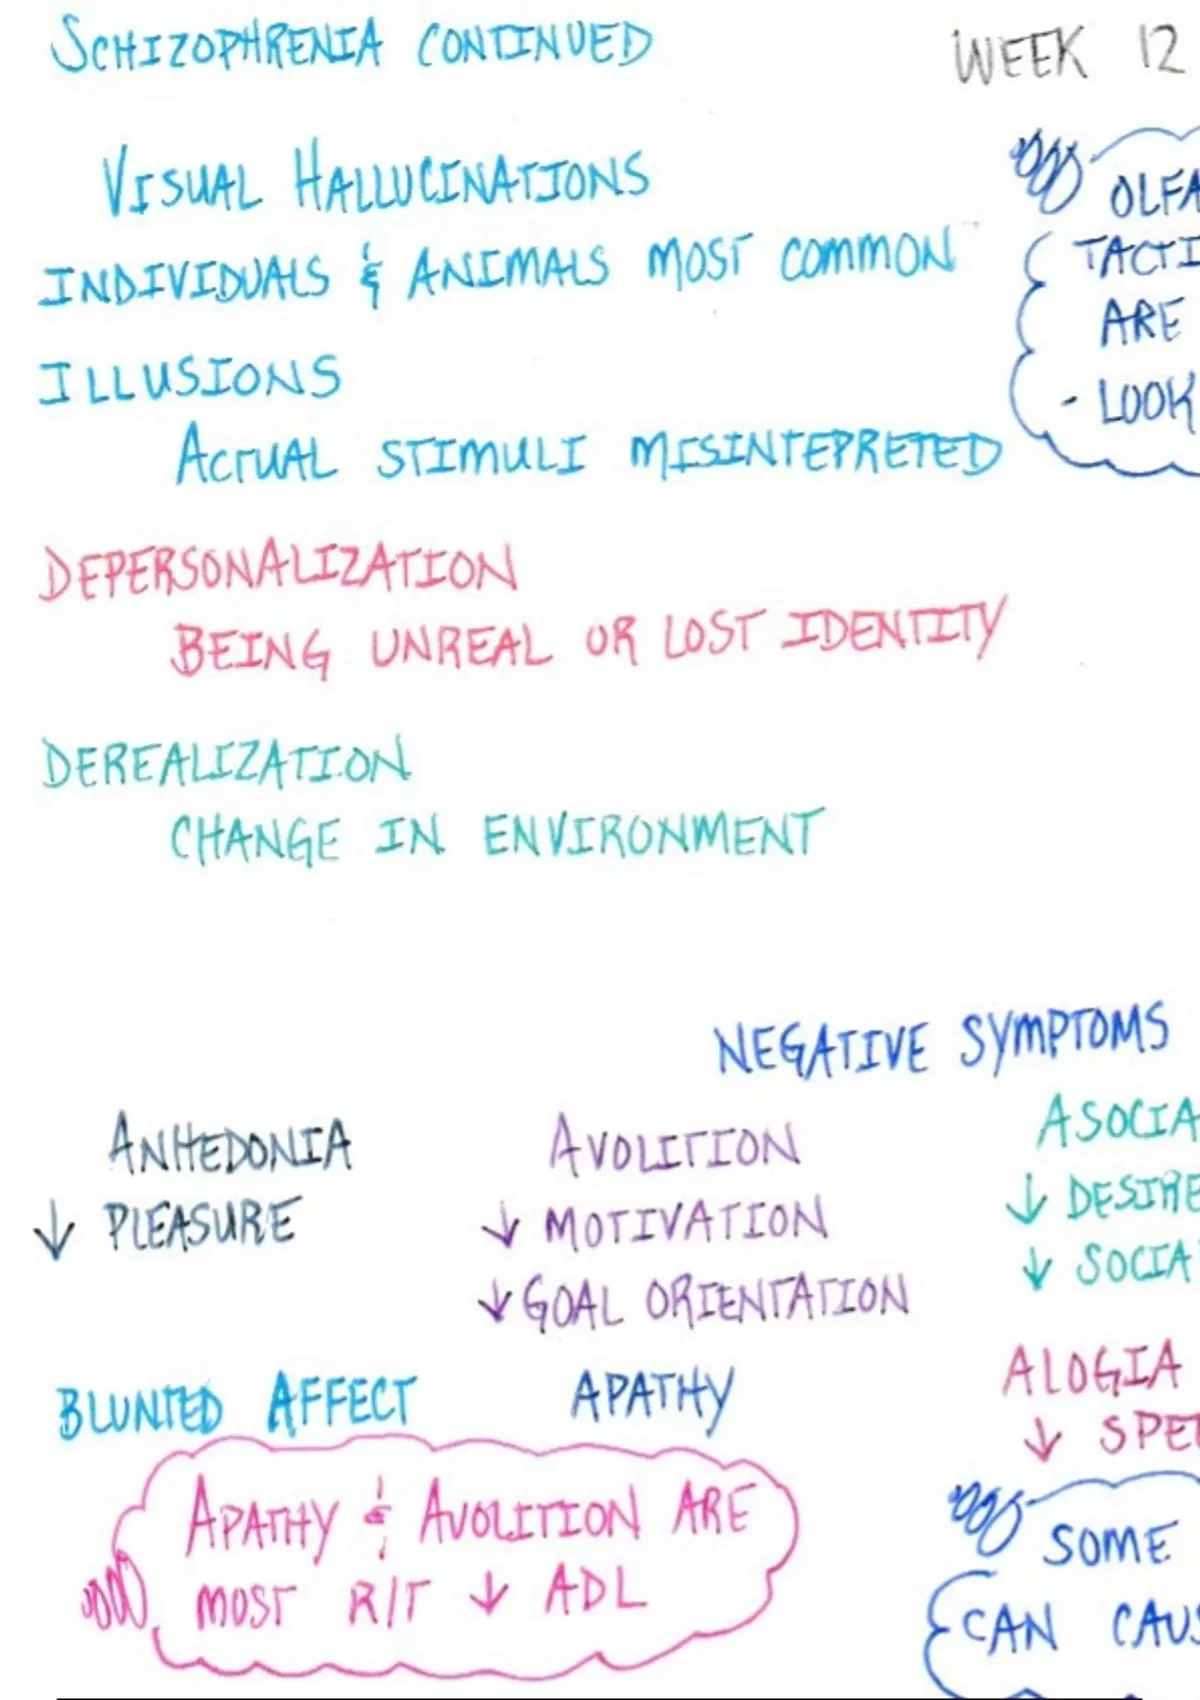 SCHIZOPHRENIA CONTINUED
WEEK 12
VISUAL HALLUCINATIONS
INDIVIDUALS & ANIMALS MOST COMMON
ILLUSIONS
ACTUAL STIMULI MISINTEPRETED
OLFA
TACTI
ARE
- LOOK
DEPERSONALIZATION
BEING UNREAL OR LOST IDENTITY
DEREALIZATION
CHANGE IN ENVIRONMENT
NEGATIVE SYMPTOMS
ANHEDONIA
↓ PLEASURE
AVOLITION
↓ MOTIVATION
↓ GOAL ORIENTATION
ASOCIA
↓ DESIRE
↓ SOCIA
BLUNTED AFFECT
APATHY
ALOGIA
↓ SPE
APATHY & AVOLITION ARE
MOST R/T ↓ ADL
SOME
CAN CAUS